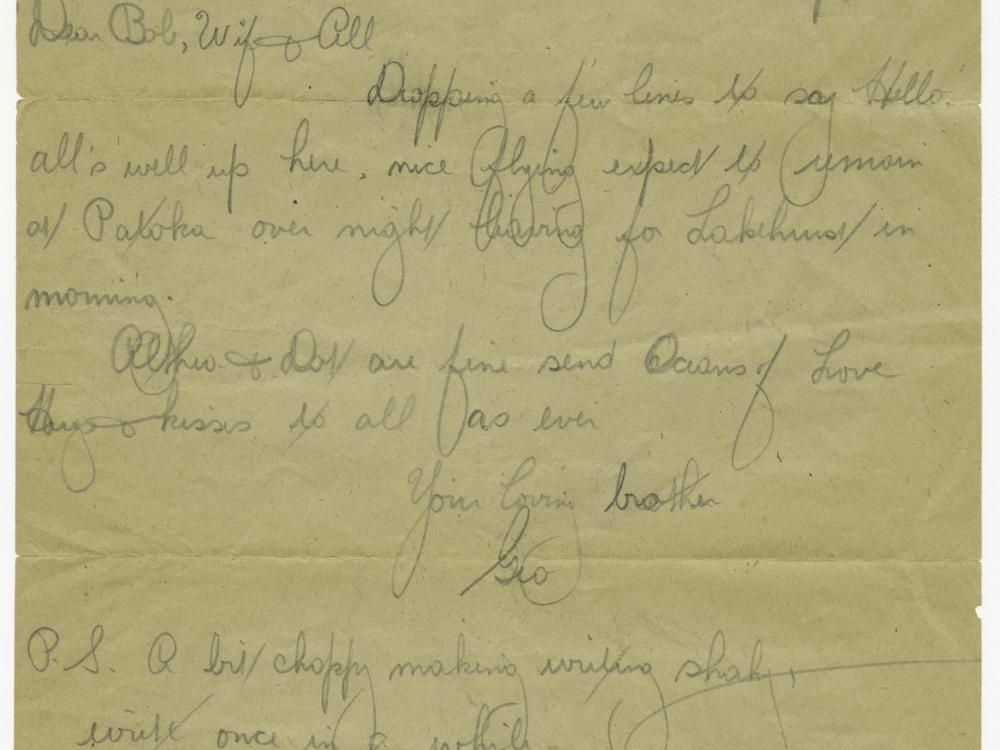 Dear Bob, Wife & All
Dropping a few lines to say Hello.
all's well up here, nice flying expect to remain
at Patoka over night leaving for Lakehurst in
morning.
Althea & Dot are fine send Oceans of Love
Hugs & kisses to all as ever
Your loving brother
Geo
P.S. A bit choppy making writing shaky,
write once in a while.